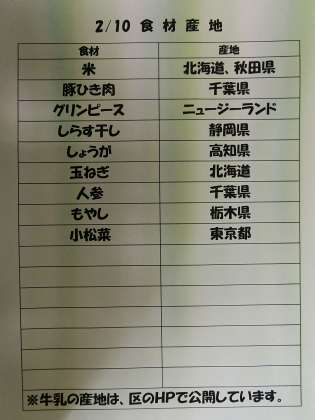 2/10 食材産地
食材 産地
米 北海道、秋田県
豚ひき肉 千葉県
グリンピース ニュージーランド
しらす干し 静岡県
しょうが 高知県
玉ねぎ 北海道
人参 千葉県
もやし 栃木県
小松菜 東京都
※牛乳の産地は、区のHPで公開しています。